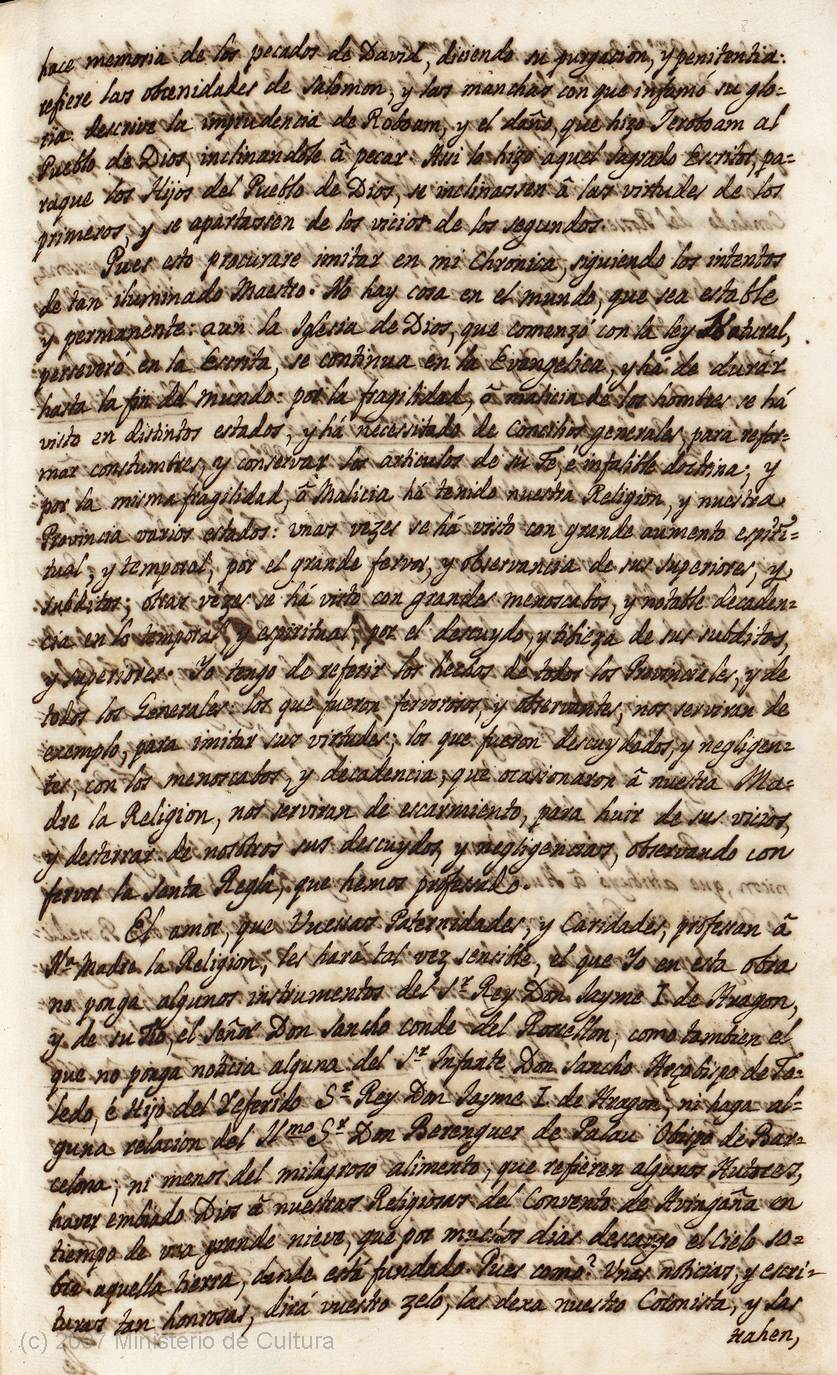 hace memoria de los pecados de David, diciendo su purgacion, y penitentia:
refiere las obcenidades de Salomon, y las manchas con que infamó su glo=
ria: descrive la imprudencia de Roboam, y el daño, que hizo Jeroboam al
Pueblo de Dios, inclinandole â pecar. Assi lo hizo aquel sagrado Escritor, pa=
raque los Hijos del Pueblo de Dios, se inclinassen â las virtudes de los
primeros, y se apartassen de los vicios de los segundos.
Pues esto procurare imitar en mi Chronica, siguiendo los intentos
de tan iluminado Maestro. No hay cosa en el mundo, que sea estable
y permanente: aun la Iglesia de Dios, que comenzó con la ley Natural,
perseveró en la Escrita, se continua en la Evangelica, y há de durar
hasta la fin del mundo: por la fragilidad, â malicia de los hombres se há
visto en distintos estados, y há necessitado de Concilios generales, para refor=
mar constumbres, y conservar los articulos de su Fe, e infalible doctrina; y
por la misma fragilidad, â Malicia há tenido nuestra Religion, y nuestra
Provincia varios estados: vnas vezes se há visto con grande aumento espiri=
tual, y temporal, por el grande fervor, y observancia de sus superiores, y
subditos; otras vezes se há visto con grandes menoscabos, y notable decaden=
cia en lo temporal, y espiritual, por el descuydo, y tibieza de sus subditos,
y superiores. Yo tengo de referir los hechos de todos los Provinciales, y de
todos los Generales: los que fueron fervorosos, y observantes, nos serviran de
exemplo, para imitar sus virtudes; los que fueron descuydados, y negligen=
tes, con los menoscabos, y decadencia, que ocasionaron â nuestra Ma=
dre la Religion, nos serviran de escarmiento, para huir de sus vicios,
y desterrar de nosotros sus descuydos, y negligencias, observando con
fervor la santa Regla, que hemos professado.
El amor, que Vuessas Paternidades, y Caridades, professan â
Nra Madre la Religion, les hará tal vez sensible, el que Yo en esta obra
no ponga algunos instrumentos del Sr. Rey Don Jayme I de Aragon,
y de su Tio, el señor Don Sancho conde del Rosellon; como tambien el
que no ponga noticia alguna del Sr. Infante Don Sancho Arçobispo de To=
ledo, é Hijo del referido Sr. Rey Don Jayme I de Aragon; ni haga al=
guna relacion del Illmo Sr. Don Berenguer de Palau Obispo de Bar=
celona; ni menos del milagroso alimento, que refieren algunos Autores,
haver embiado Dios â nuestras Religiosas del Convento de Avingaña en
tiempo de vna grande nieve, que por muchos dias descargo el Cielo so=
bre aquella tierra, donde está fundado. Pues como? Vnas noticias, y escri=
turas tan honrosas, dirá vuestro zelo, las dexa nuestro Coronista, y las
trahen,
(c) 2007 Ministerio de Cultura